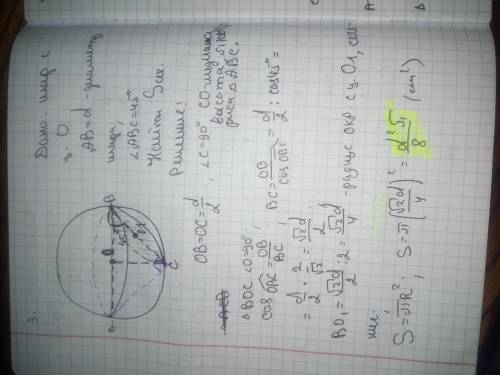 3.
Дано: шар с
ц. O
AB=d - диаметр
шара,
∠ABC=45°
Найти Sсеч.
Решение:
OB=OC=d/2, ∠C=90° CO-медиана
высота, биссек
риса △ABC.
△BOC ∠O=90°,
cos OBC = OB/BC; BC = OB/cos OBC = d/2 : cos45° =
= d/2 · 2/√2 = √2d/2
BO₁ = √2d/2 : 2 = √2d/4 - радиус окр с ц. O₁, сече-
ние.
S=πR²; S=π(√2d/4)² = d²π/8 (см²)
A
B
C
45°